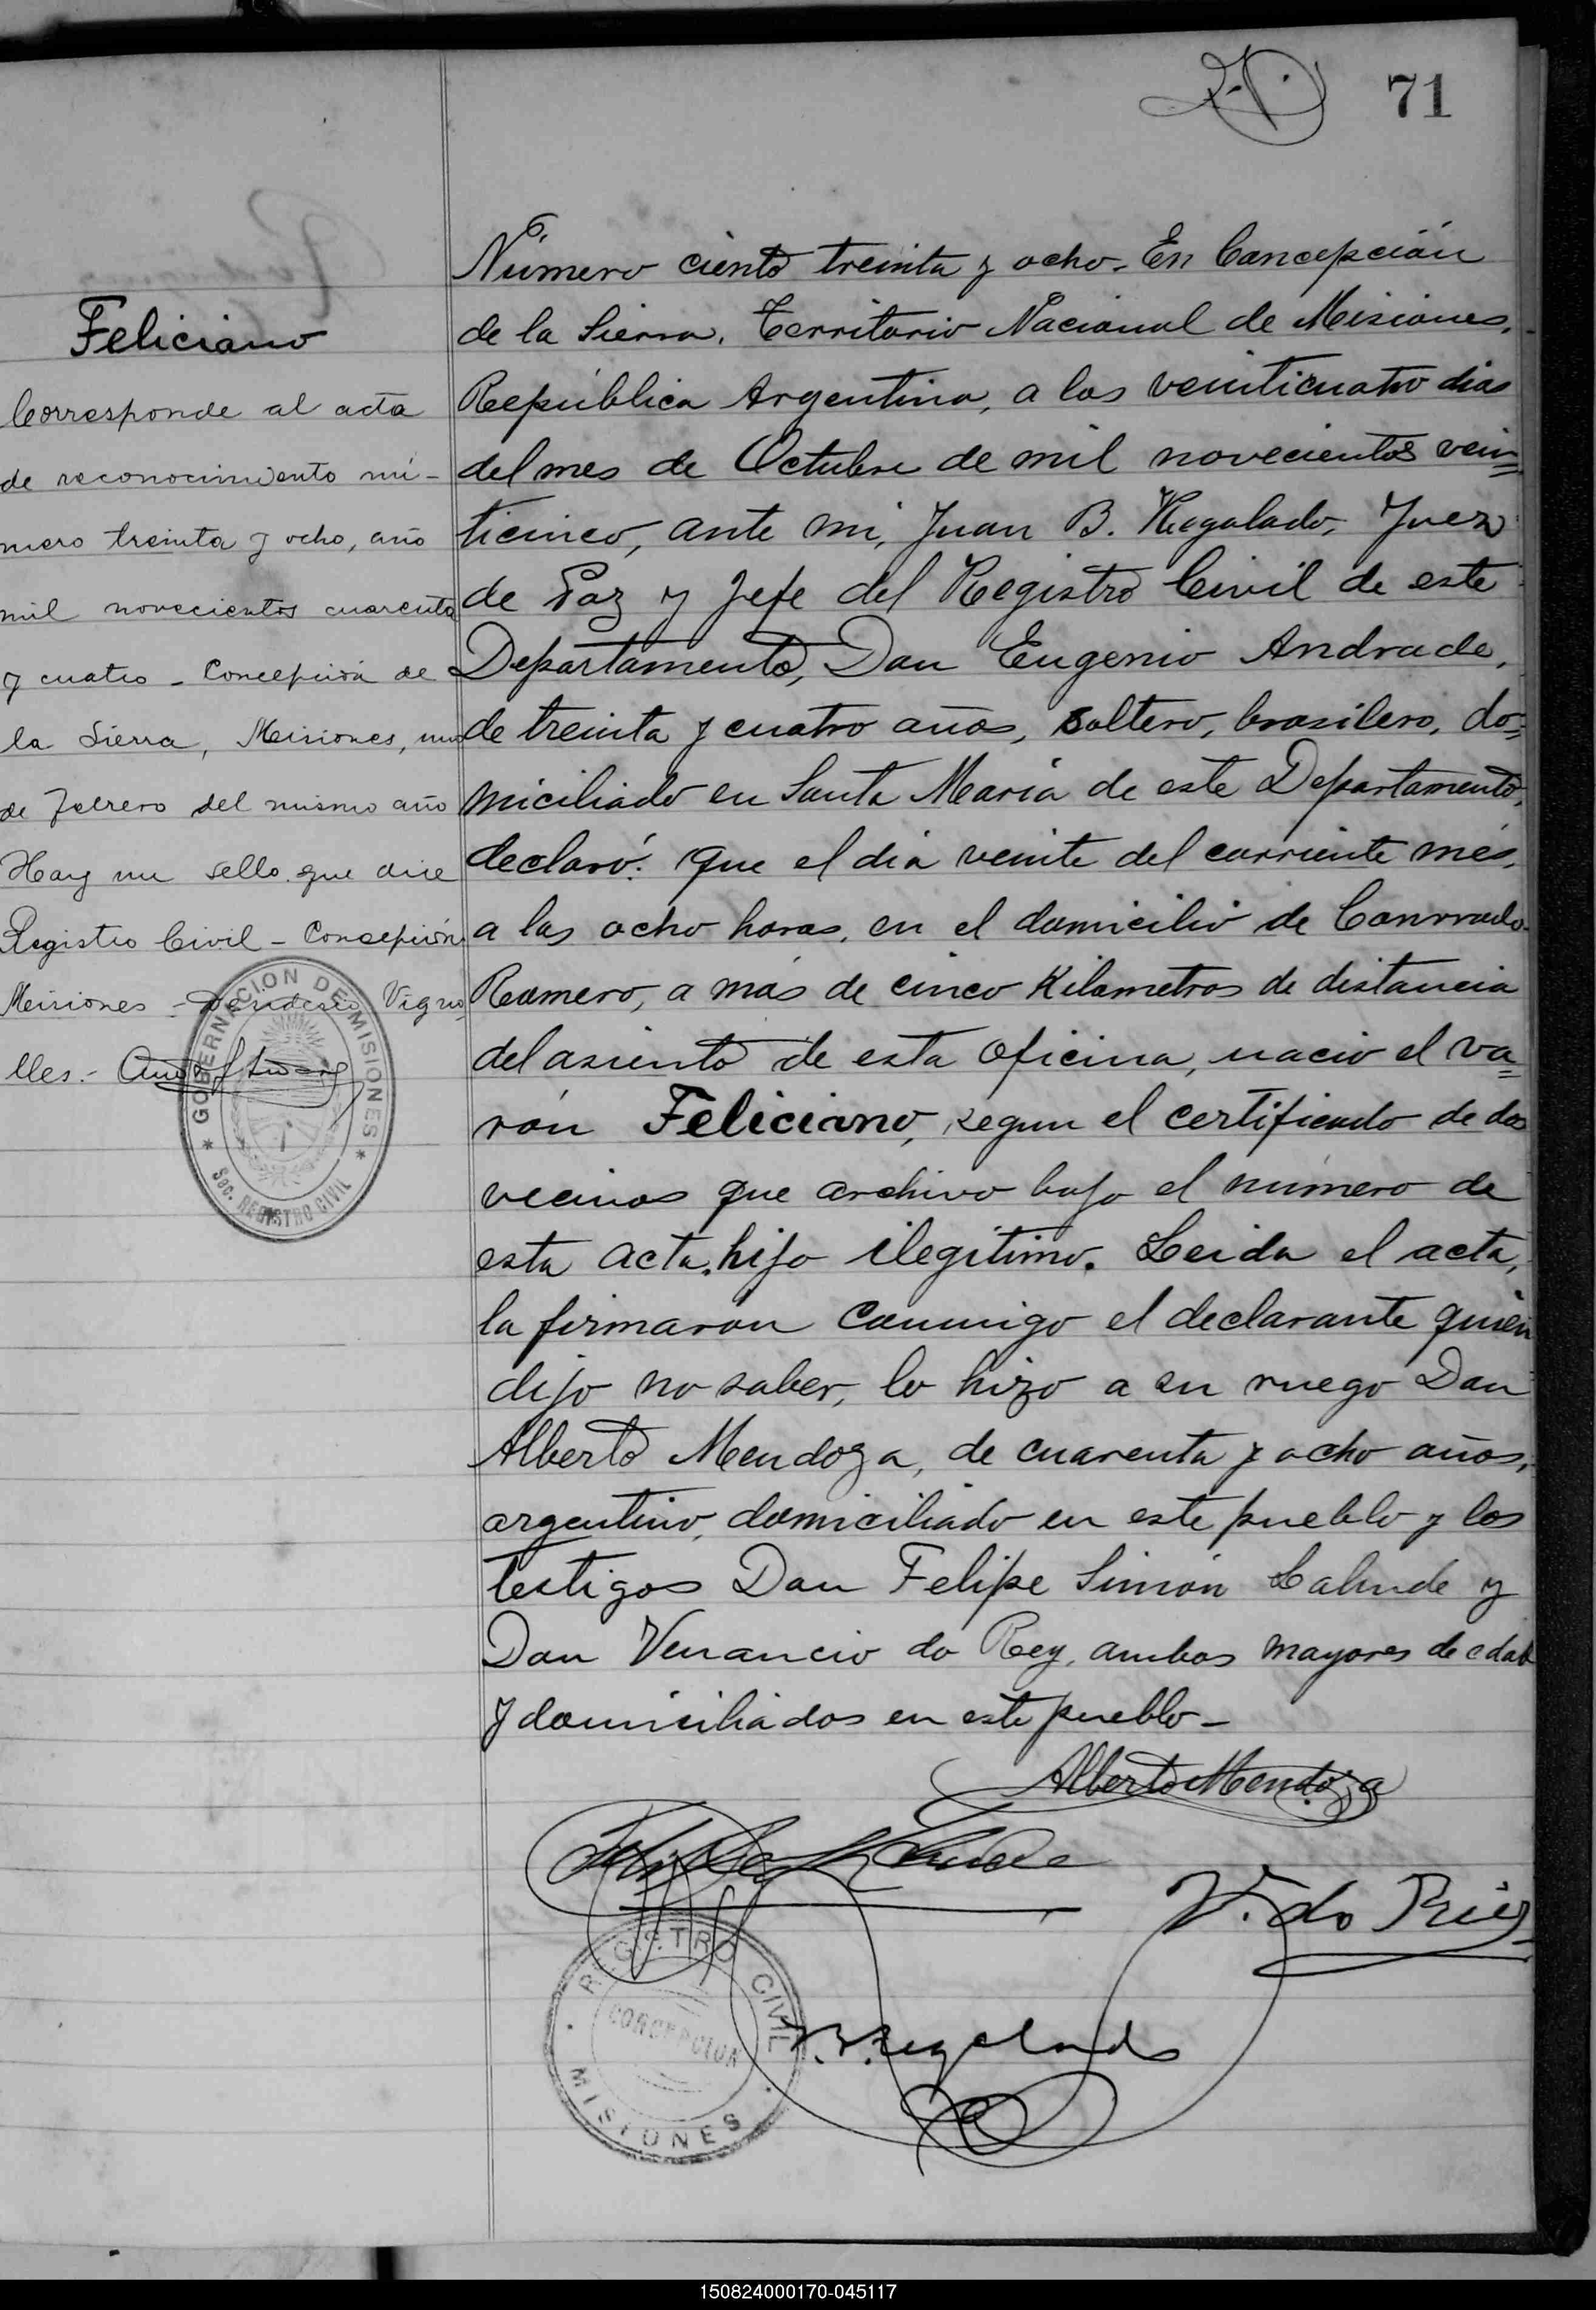 71
Feliciano
Corresponde al acta
de reconocimiento nú-
mero treinta y ocho, año
mil novecientos cuarenta
y cuatro - Concepción de
la Sierra, Misiones, uno
de Febrero del mismo año
Hay un sello que dice
Registro Civil - Concepción
Misiones - Desiderio Vigno
lles.-
GOBERNACION DE MISIONES
Sec. REGISTRO CIVIL
Número ciento treinta y ocho - En Concepción
de la Sierra, Territorio Nacional de Misiones,
República Argentina, a los veinticuatro dias
del mes de Octubre de mil novecientos vein=
ticinco, ante mi, Juan B. Regalado, Juez
de Paz y Jefe del Registro Civil de este
Departamento, Don Eugenio Andrade,
de treinta y cuatro años, soltero, brasilero, do=
miciliado en Santa María de este Departamento,
declaró: Que el dia veinte del corriente més,
a las ocho horas, en el domicilio de Conrrado
Romero, a más de cinco Kilometros de distancia
del asiento de esta Oficina, nació el va=
rón Feliciano, segun el certificado de dos
vecinos que archivo bajo el número de
esta acta, hijo ilegítimo. Leida el acta,
la firmaron conmigo el declarante quien
dijo no saber, lo hizo a su ruego Don
Alberto Mendoza, de cuarenta y ocho años,
argentino, domiciliado en este pueblo y los
testigos Don Felipe Simón Lalinde y
Don Venancio do Rey, ambos mayores de edad
y domiciliados en este pueblo -
Alberto Mendoza
V. do Rey
J.B. Regalado
REGISTRO CIVIL
CONCEPCION
MISIONES
150824000170-045117